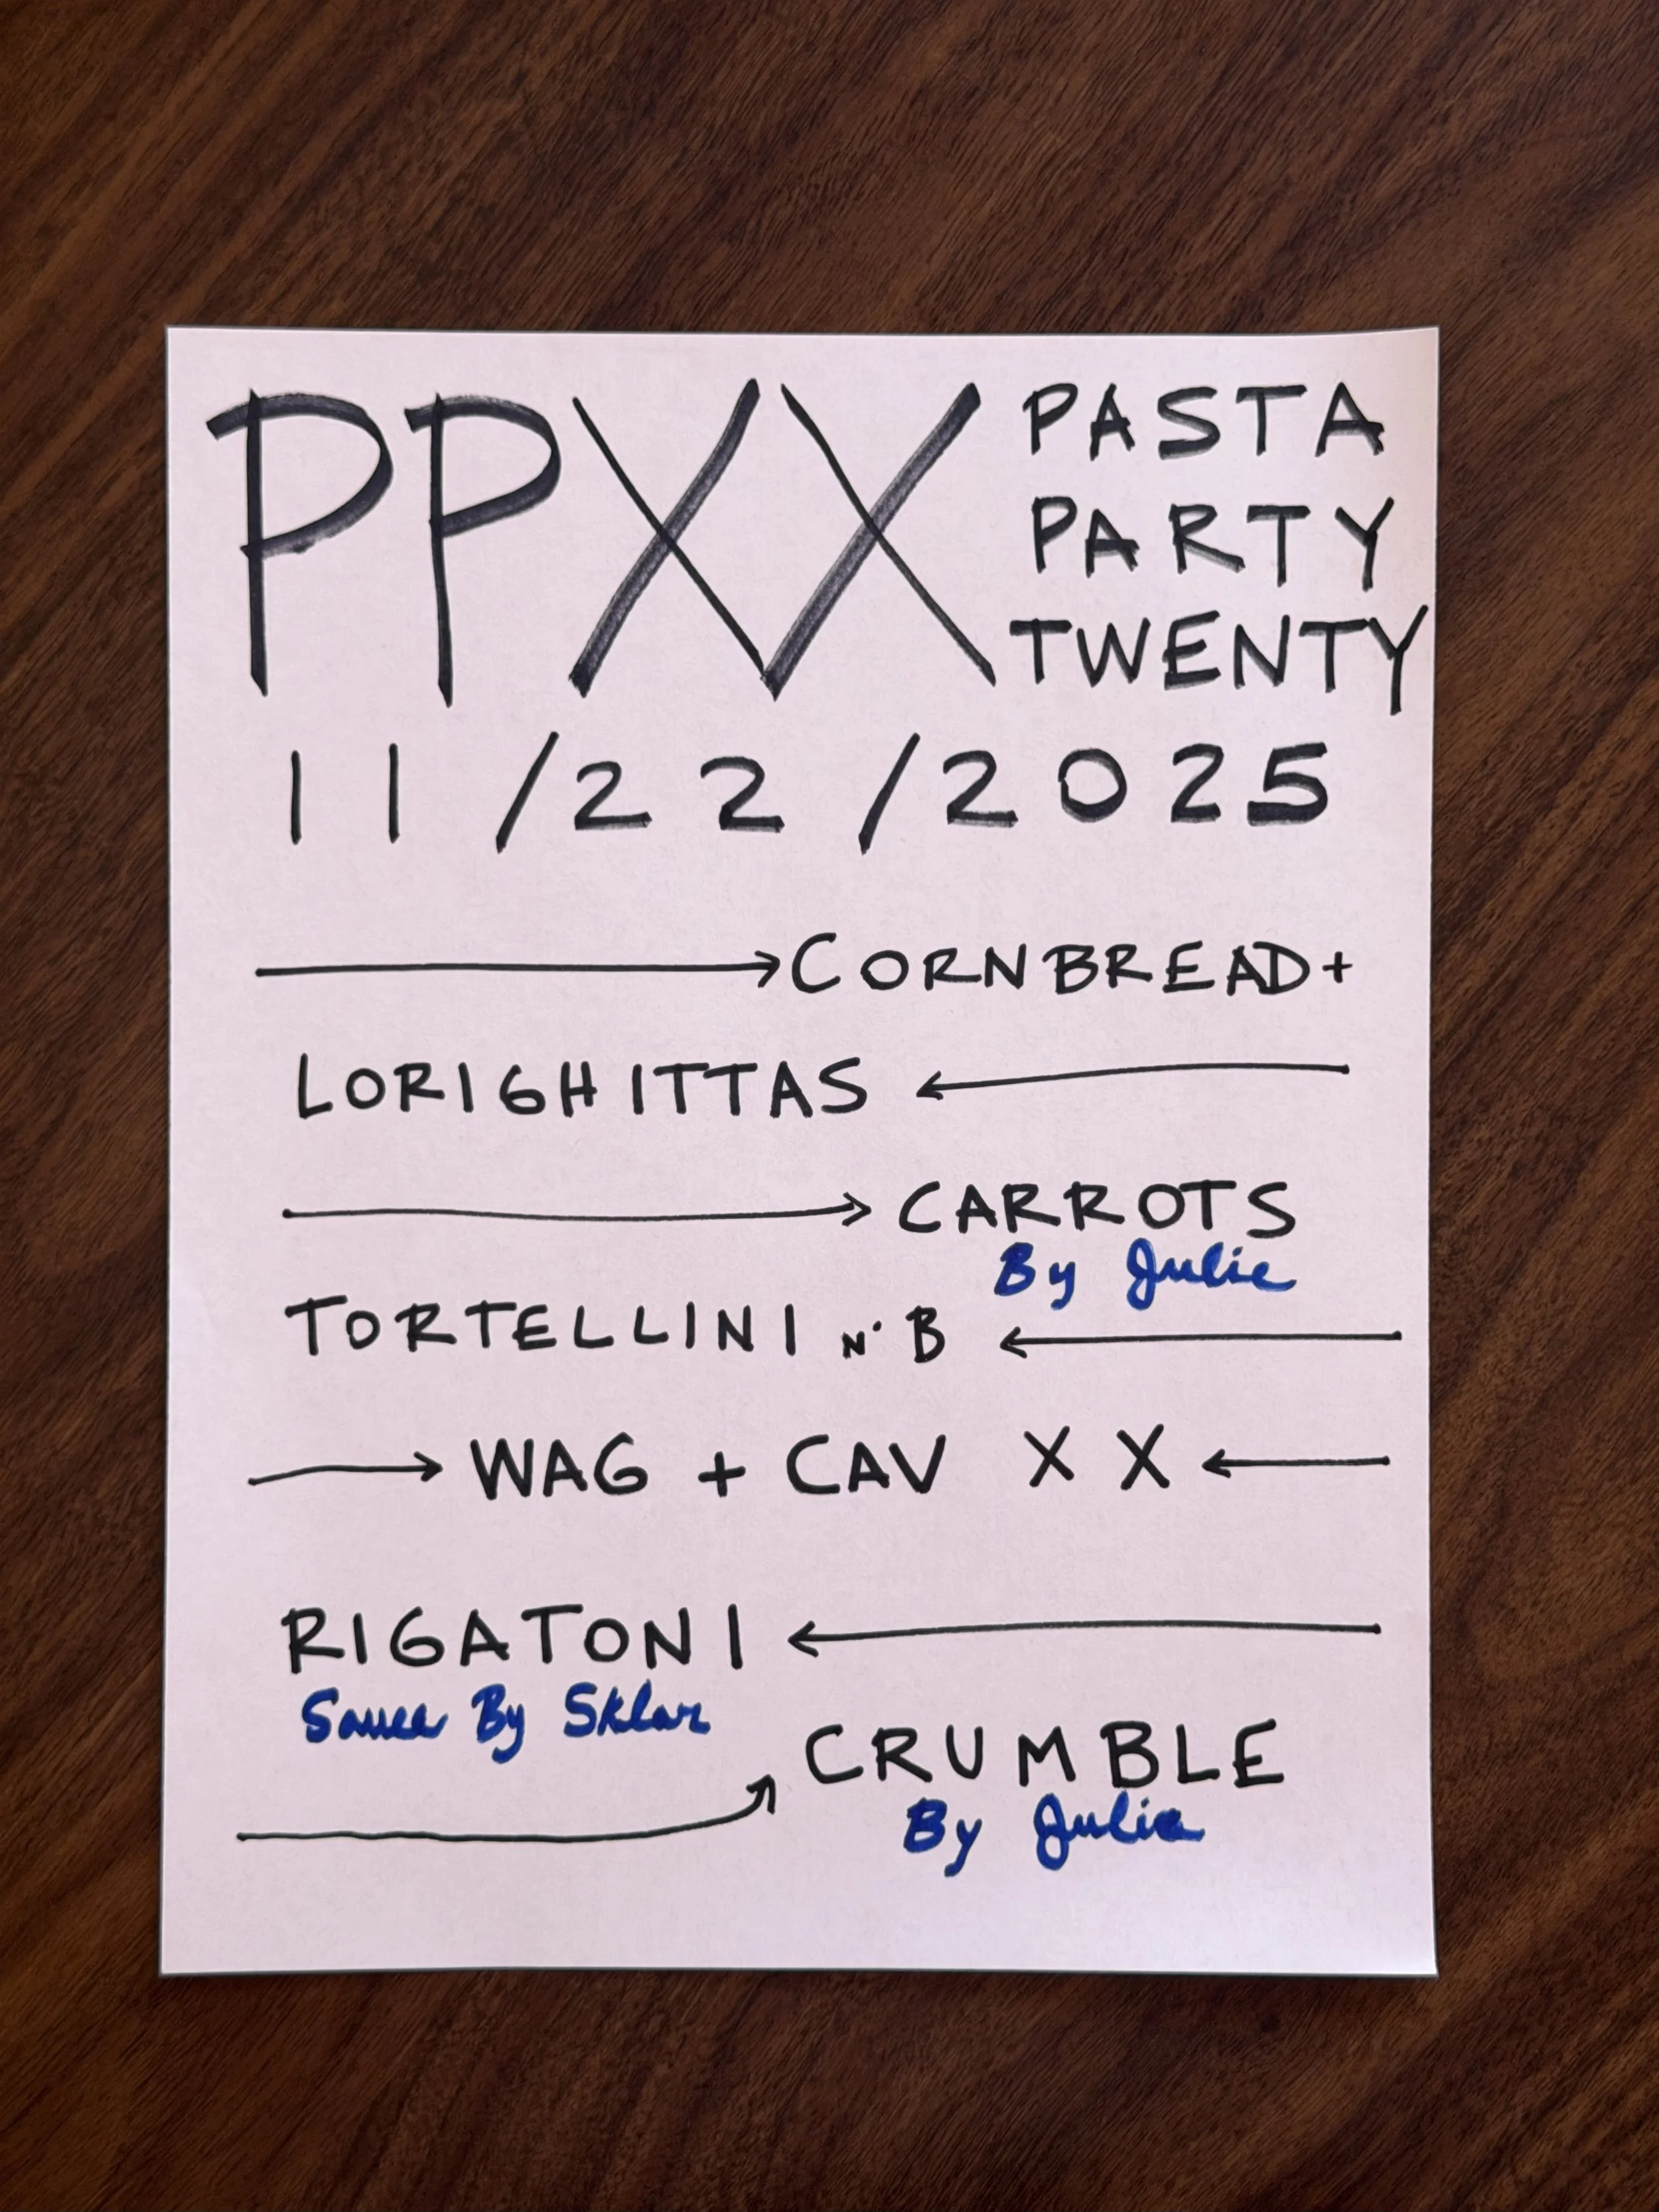 PPXX
PASTA
PARTY
TWENTY
11/22/2025
CORNBREAD+
LORIGHITTAS
CARROTS
By Julie
TORTELLINI N' B
WAG + CAV XX
RIGATONI
Sauce By Sklar
CRUMBLE
By Julie